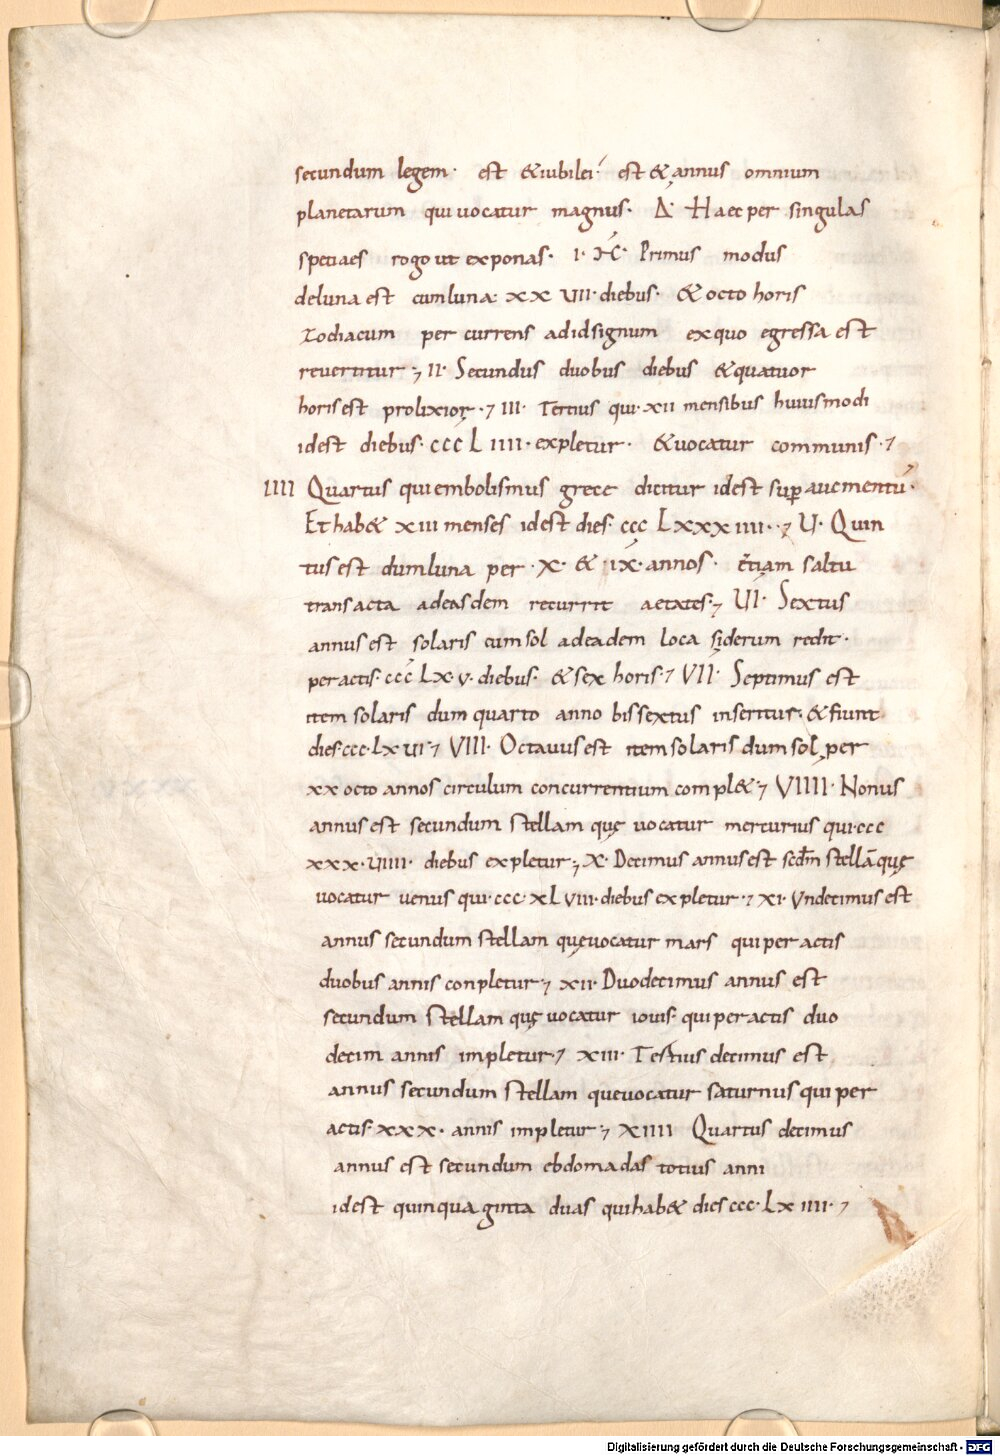 secundum legem · est & iubilei · est & annus omnium
planetarum qui uocatur magnus · Δ · Haec per singulas
speciaes rogo ut exponas · I · Primus modus
de luna est cum luna · xx uiii · diebus · & octo horis
Zodiacum per currens ad id signum ex quo egressa est
reuertitur ; II · Secundus duobus diebus & quatuor
horis est prolixior · ; III · Tertius qui · xii mensibus huiusmodi
id est diebus · ccc L iiii · expletur · & uocatur communis · ;
IIII Quartus qui embolismus grece dicitur id est sup aucmentū ·
Et hab& xiii menses id est dies · ccc Lxxx iiii · ; U · Quin
tus est dum luna per · x · & · ix · annos · etiam saltu
transacta ad easdem recurrit aetates · ; UI · Sextus
annus est solaris cum sol ad eadem loca siderum redit ·
peractis · ccc Lx · v · diebus · & sex horis · ; VII · Septimus est
item solaris dum quarto anno bissextus inseritur · & fiunt
dies · ccc · Lx ui · ; VIII · Octauus est item solaris dum sol per
xx octo annos circulum concurrentium compl& · ; VIIII · Nonus
annus est secundum stellam quę uocatur mercurius qui · ccc
xxx · uiiii · diebus expletur ; X · Decimus annus est scdm stellā quę
uocatur uenus qui · ccc · xL viii · diebus expletur · ; xi · Vndecimus est
annus secundum stellam quę uocatur mars qui peractis
duobus annis conpletur · ; xii · Duodecimus annus est
secundum stellam quę uocatur iouis · qui peractis duo
decim annis impletur · ; xiii · Tertius decimus est
annus secundum stellam que uocatur saturnus qui per
actis · xxx · annis impletur · ; xiiii Quartus decimus
annus est secundum ebdomadas totius anni
id est quinquaginta duas qui hab& dies ccc · Lx iiii · ;
Digitalisierung gefördert durch die Deutsche Forschungsgemeinschaft - DFG